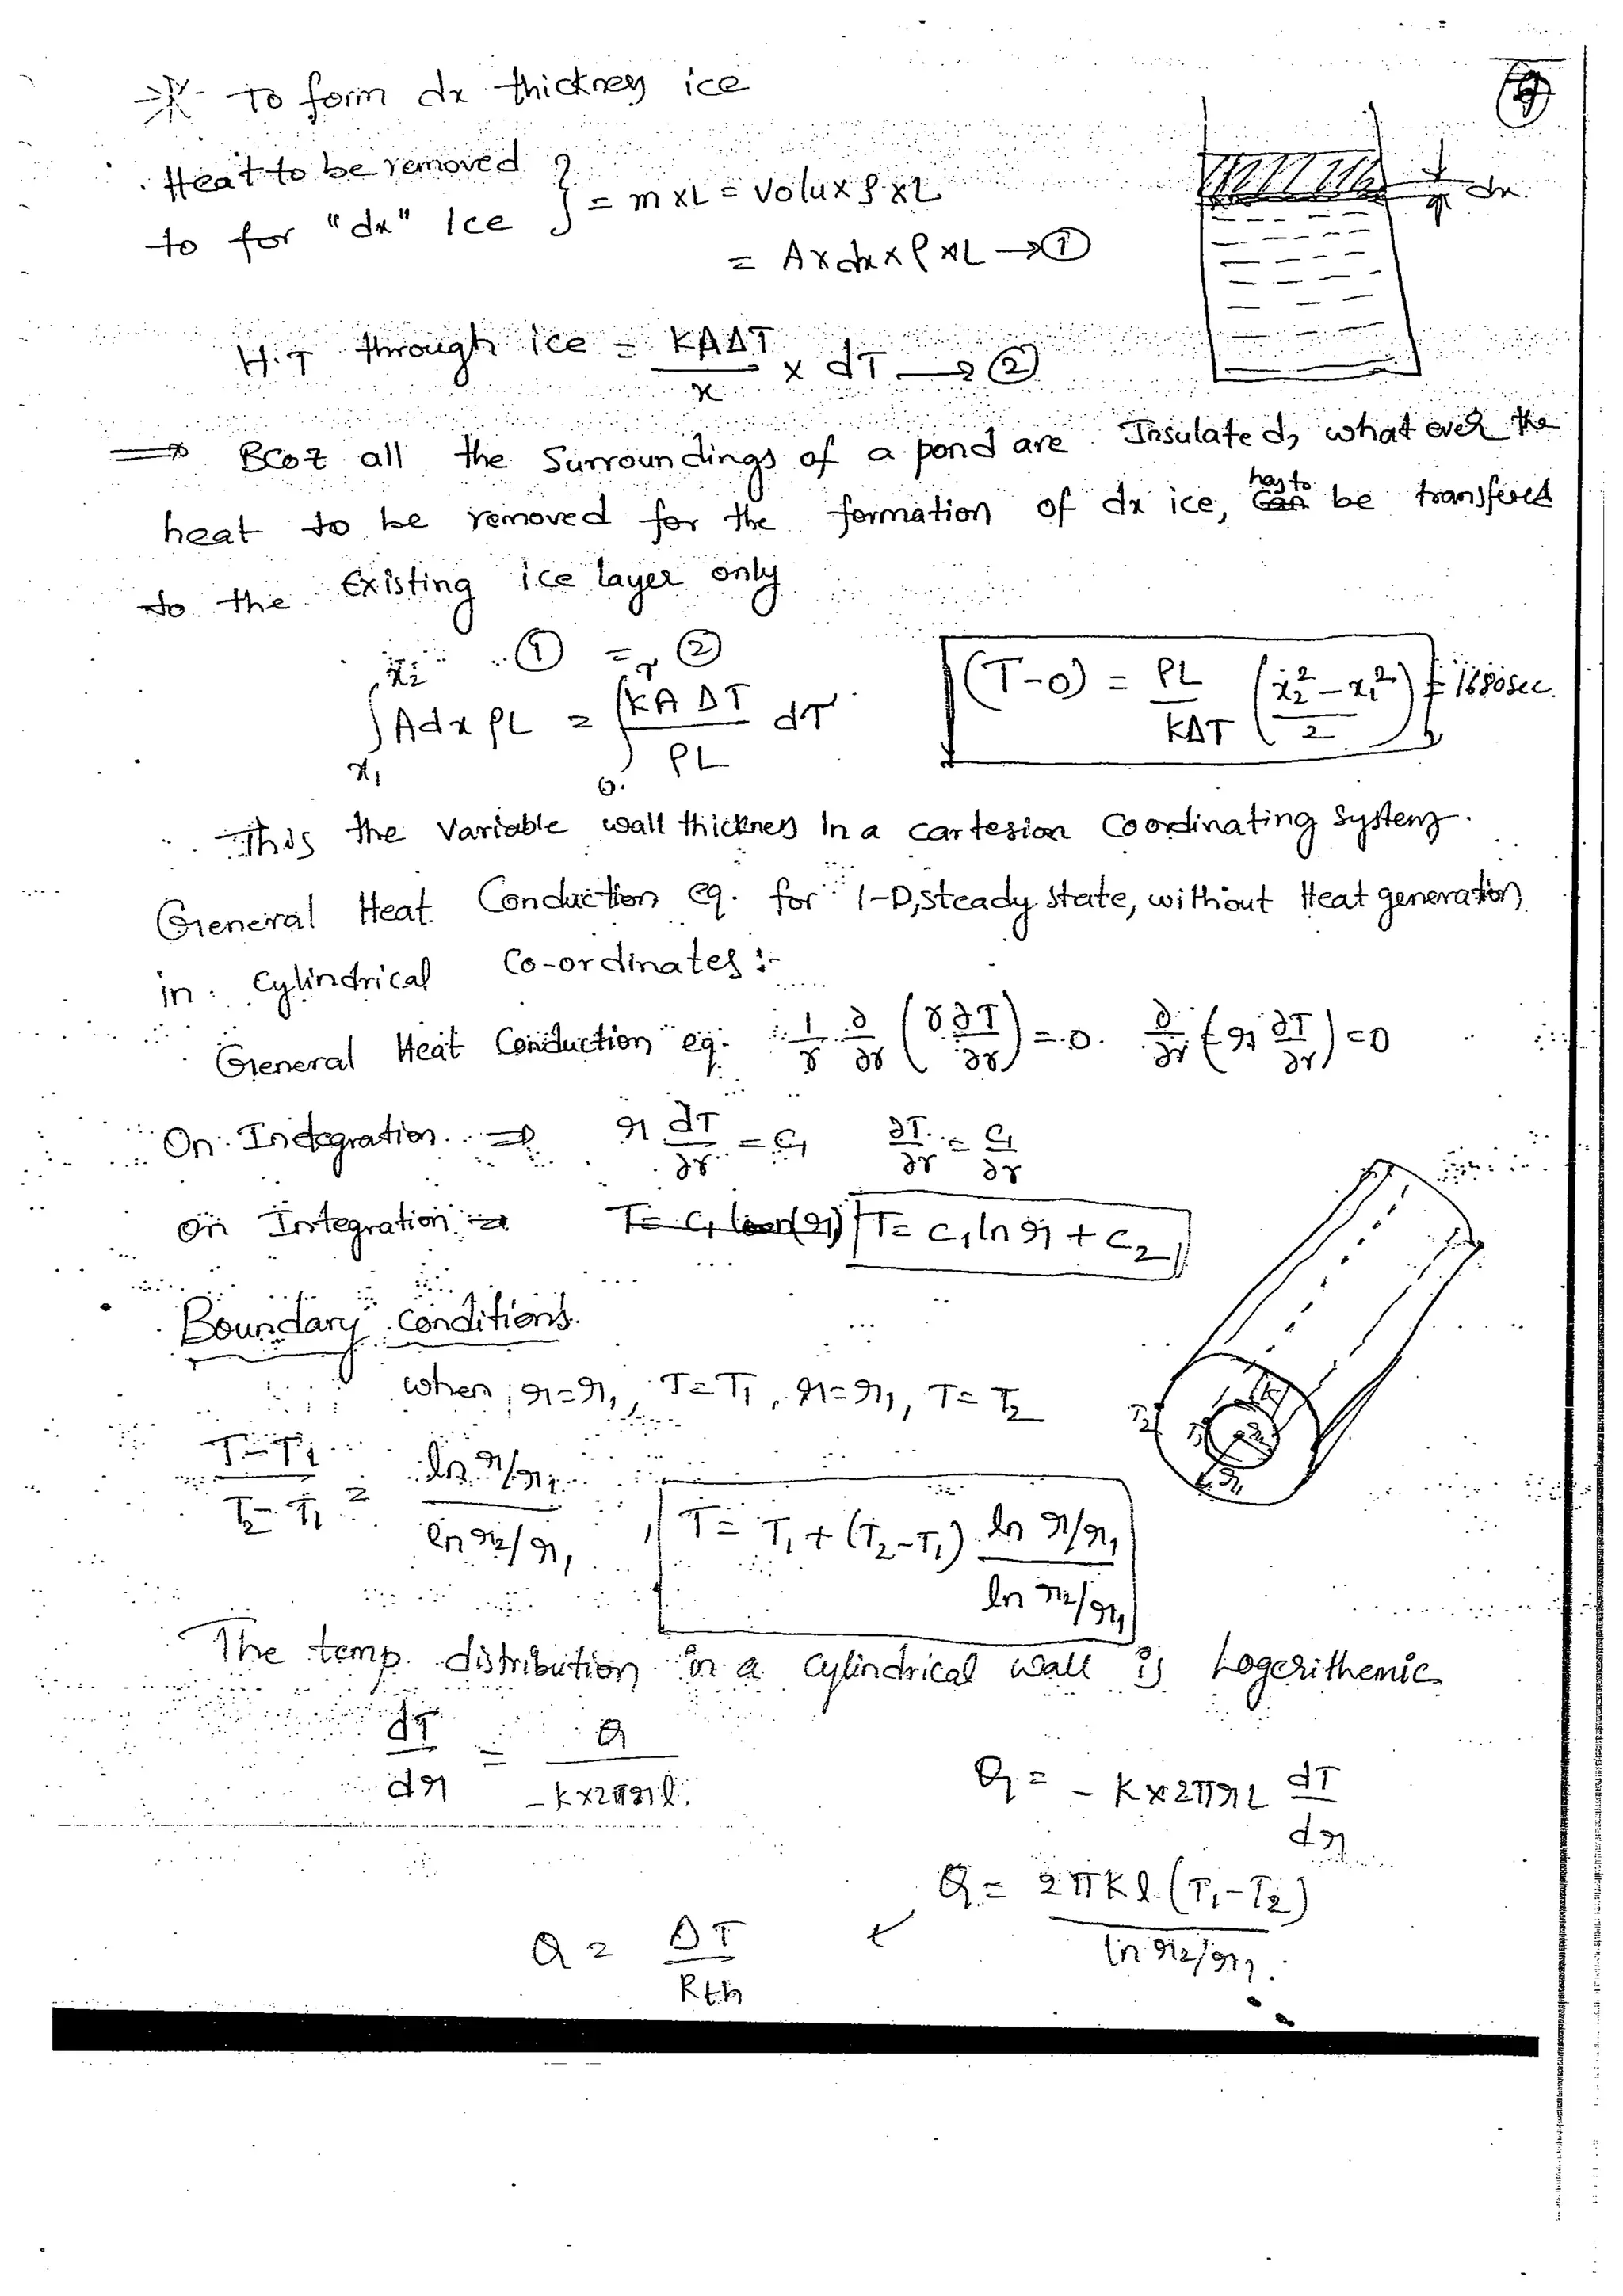 To form dx thickness ice
9
Heat to be removed
to for "dx" Ice } = m x L = Volu x ρ x L
dx
= A x dx x ρ x L → ①
H.T through ice = KAΔT / x x dT → ②
⇒ BCoz all the Surroundings of a pond are Insulated, what ever the
heat to be removed for the formation of dx ice, has to be transfered
to the Existing ice layer only
① = ②
∫x1^x2 A dx ρL = ∫0^T KA ΔT / ρL dT
(T-0) = ρL / KΔT (x2² - x1² / 2) = 1680sec.
This the variable wall thickness In a cartesion Coordinating System.
General Heat Conduction eq. for 1-D, steady state, without Heat generation
in Cylindrical Co-ordinates :-
General Heat Conduction eq. 1/r ∂/∂r (r ∂T/∂r) = 0. ∂/∂r (r ∂T/∂r) = 0
On Integration ⇒ r dT/∂r = C1 ∂T/∂r = C1/∂r
on Integration ⇒ T = C1 ln r + C2
Boundary conditions.
when r=r1, T=T1, r=r1, T=T2
T2 T1 r1
T-T1 / T2-T1 = ln r/r1 / ln r2/r1, T = T1 + (T2-T1) ln r/r1 / ln r2/r1
The temp. distribution in a cylindrical wall is Logerithemic
dT/dr = Q / -K x 2πrl.
Q = -K x 2πrL dT/dr
Q = 2πKl (T1-T2) / ln r2/r1.
Q = ΔT / Rth